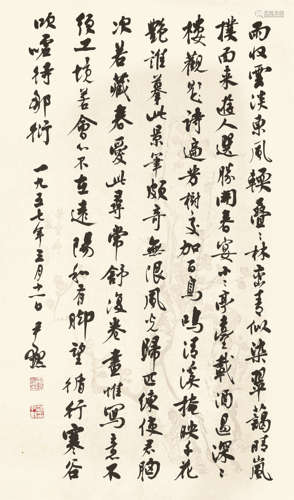 雨收雲淡東風輕疊疊林巒青似染翠藹晴嵐
撲面來遊人選勝開春宴小小亭臺載酒過深深
樓觀題詩遍芳樹交加百鳥鳴清溪掩映千花
艷誰摹此景筆頗奇無限風光歸匹練使君胸
次若藏春愛此尋常舒復卷畫惟寫意不
須工境若會心不在遠陽和有腳望循行寒谷
吹噓待鄒衍一九五七年三月十一日尹默